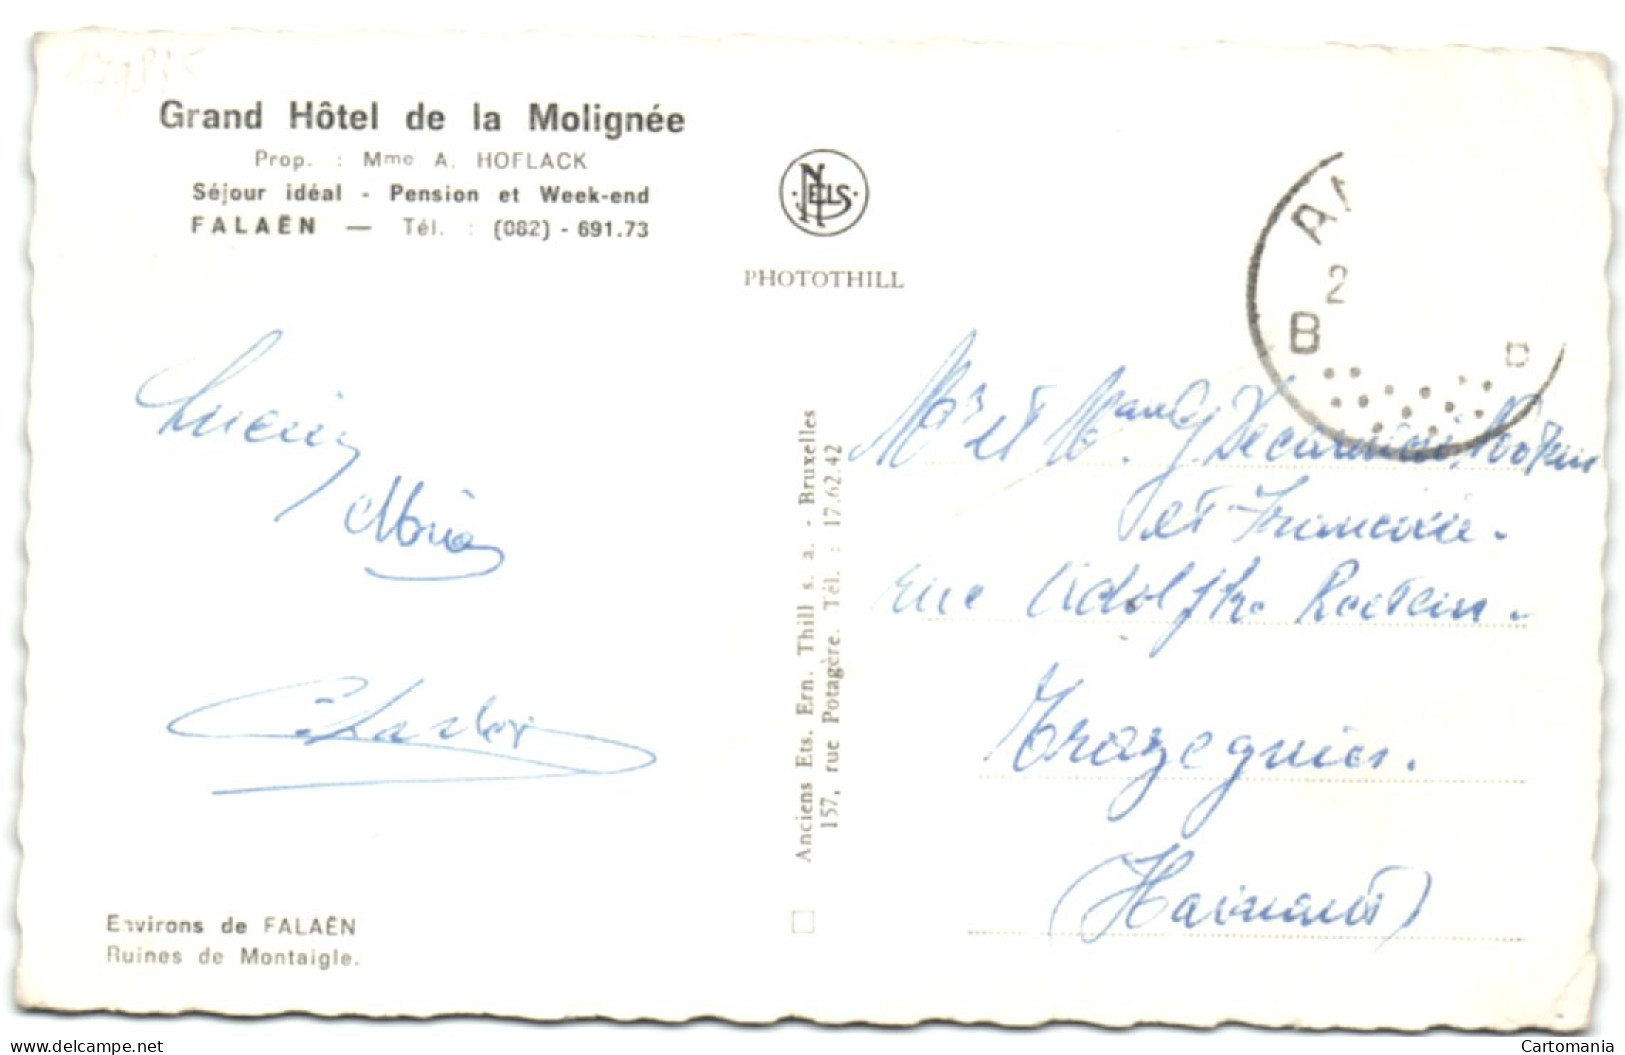 Grand Hôtel de la Molignée
Prop. : Mme A. HOFLACK
Séjour idéal - Pension et Week-end
FALAËN — Tél. : (082) - 691.73
NELS
PHOTOTHILL
2
B B
Lucien
Maria
Charles
Anciens Ets. Ern. Thill s. a. - Bruxelles
157, rue Potagère. Tél. : 17.62.42
Mr et
et Francine.
rue Adolphe
Trazegnies.
(Hainaut)
Environs de FALAËN
Ruines de Montaigle.
www.delcampe.net
Cartomania